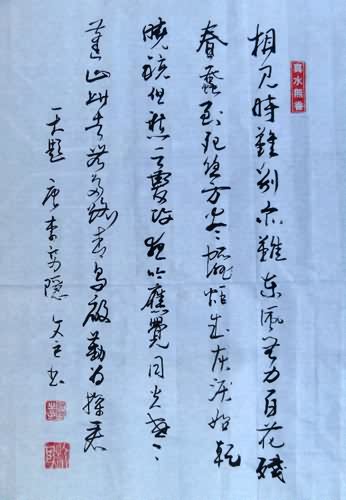 真水無香
相見時難別亦難東風無力百花殘
春蠶到死絲方盡蠟炬成灰淚始乾
曉鏡但愁雲鬢改夜吟應覺月光寒
蓬山此去無多路青鳥殷勤為探看
无題 唐李商隱 文書